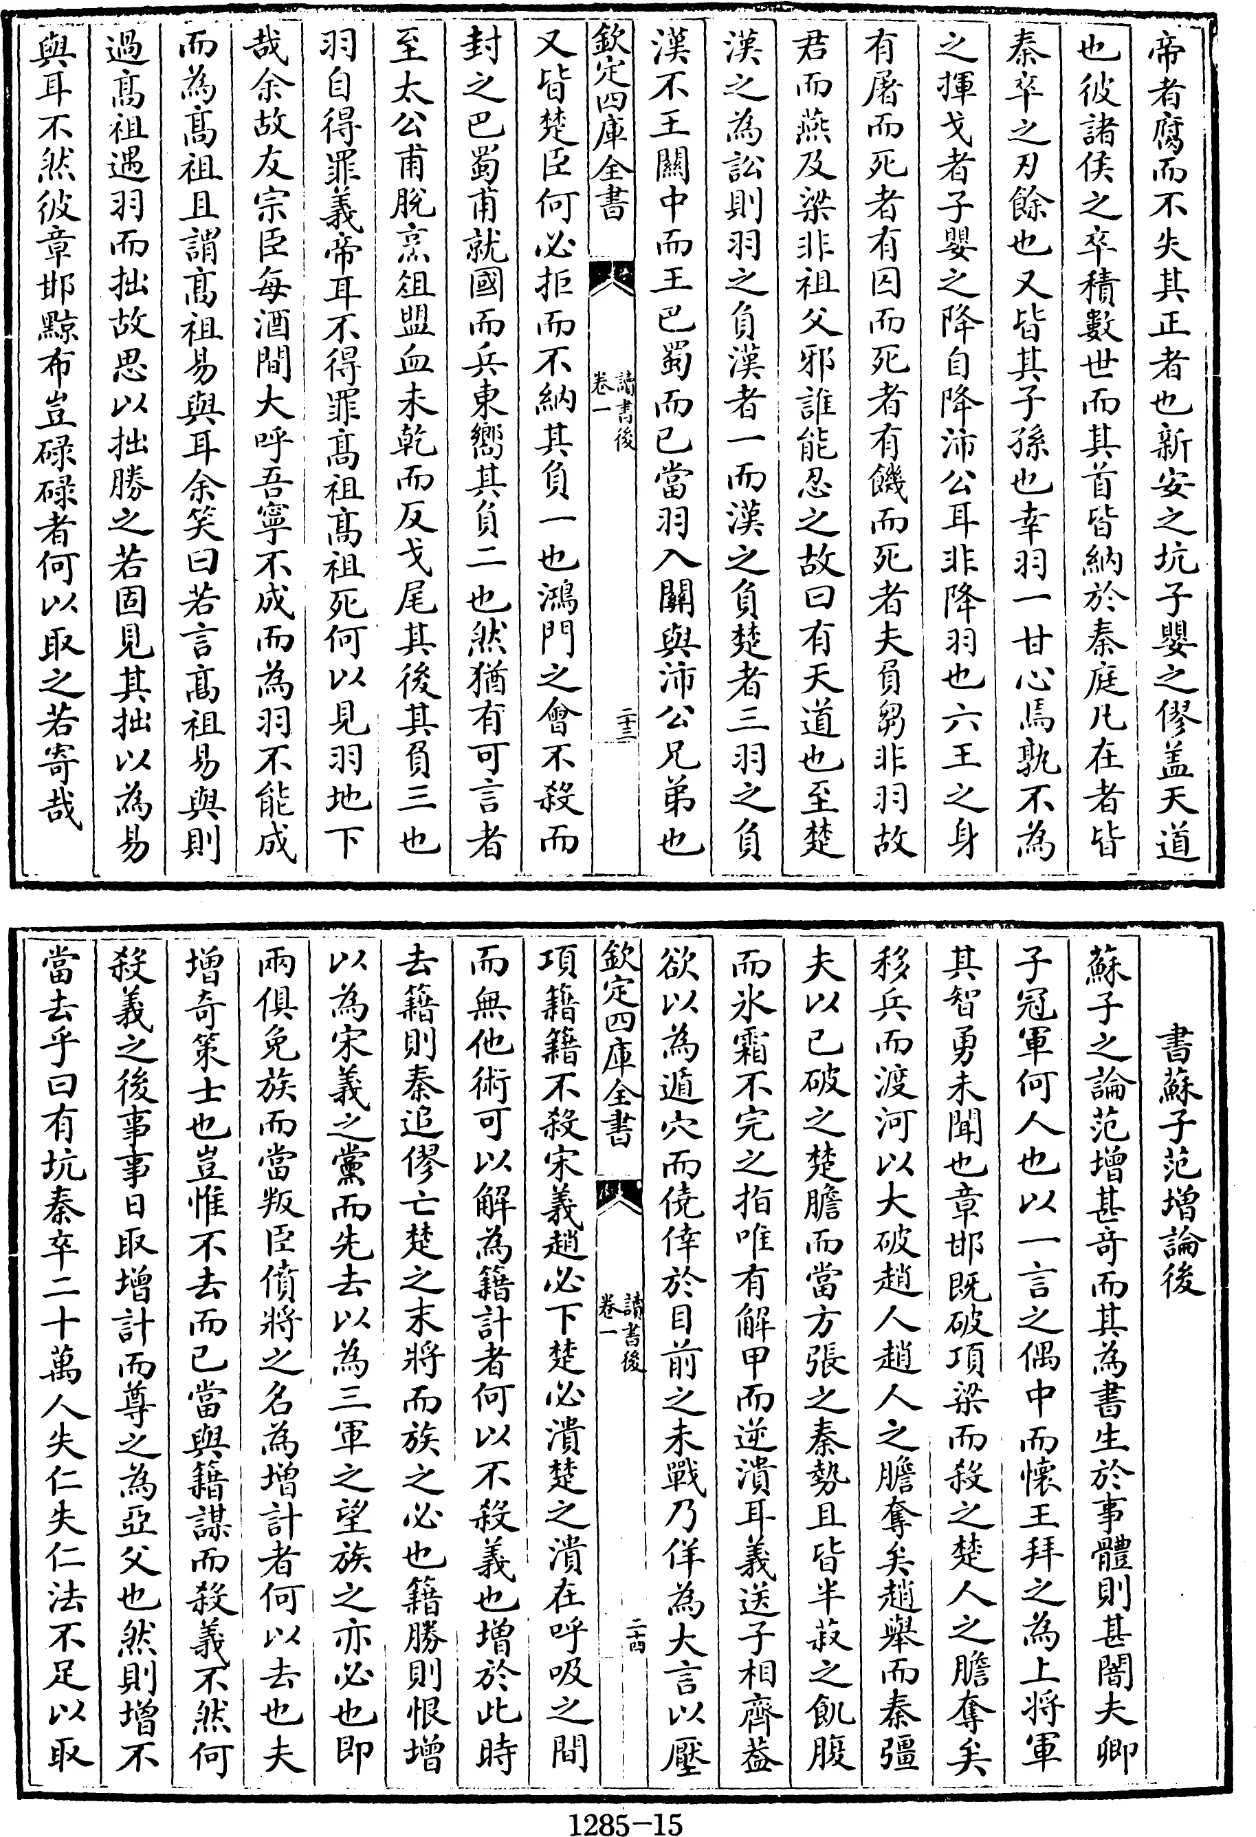 帝者腐而不失其正者也新安之坑子嬰之僇盖天道
也彼諸侯之卒積數世而其首皆納於秦庭凡在者皆
秦卒之刃餘也又皆其子孫也幸羽一甘心焉孰不為
之揮戈者子嬰之降自降沛公耳非降羽也六王之身
有屠而死者有囚而死者有饑而死者夫負芻非羽故
君而燕及梁非祖父邪誰能忍之故曰有天道也至楚
漢之為訟則羽之負漢者一而漢之負楚者三羽之負
漢不王關中而王巴蜀而已當羽入關與沛公兄弟也
欽定四庫全書
讀書後
卷一
二十三
又皆楚臣何必拒而不納其負一也鴻門之會不殺而
封之巴蜀甫就國而兵東嚮其負二也然猶有可言者
至太公甫脫烹俎盟血未乾而反戈尾其後其負三也
羽自得罪義帝耳不得罪髙祖髙祖死何以見羽地下
哉余故友宗臣每酒間大呼吾寧不成而為羽不能成
而為髙祖且謂髙祖易與耳余笑曰若言髙祖易與則
過髙祖遇羽而拙故思以拙勝之若固見其拙以為易
與耳不然彼章邯黥布豈碌碌者何以取之若寄哉
書蘇子范增論後
蘇子之論范增甚奇而其為書生於事體則甚闇夫卿
子冠軍何人也以一言之偶中而懷王拜之為上將軍
其智勇未聞也章邯既破項梁而殺之楚人之膽奪矣
移兵而渡河以大破趙人趙人之膽奪矣趙舉而秦彊
夫以已破之楚膽而當方張之秦勢且皆半菽之飢腹
而氷霜不完之指唯有解甲而逆潰耳義送子相齊葢
欲以為遁穴而僥倖於目前之未戰乃佯為大言以壓
欽定四庫全書
讀書後
卷一
二十四
項籍籍不殺宋義趙必下楚必潰楚之潰在呼吸之間
而無他術可以解為籍計者何以不殺義也增於此時
去籍則秦追僇亡楚之末將而族之必也籍勝則恨增
以為宋義之黨而先去以為三軍之望族之亦必也即
兩俱免族而當叛臣僨將之名為增計者何以去也夫
增奇策士也豈惟不去而已當與籍謀而殺義不然何
殺義之後事事日取增計而尊之為亞父也然則增不
當去乎曰有坑秦卒二十萬人失仁失仁法不足以取
1285-15